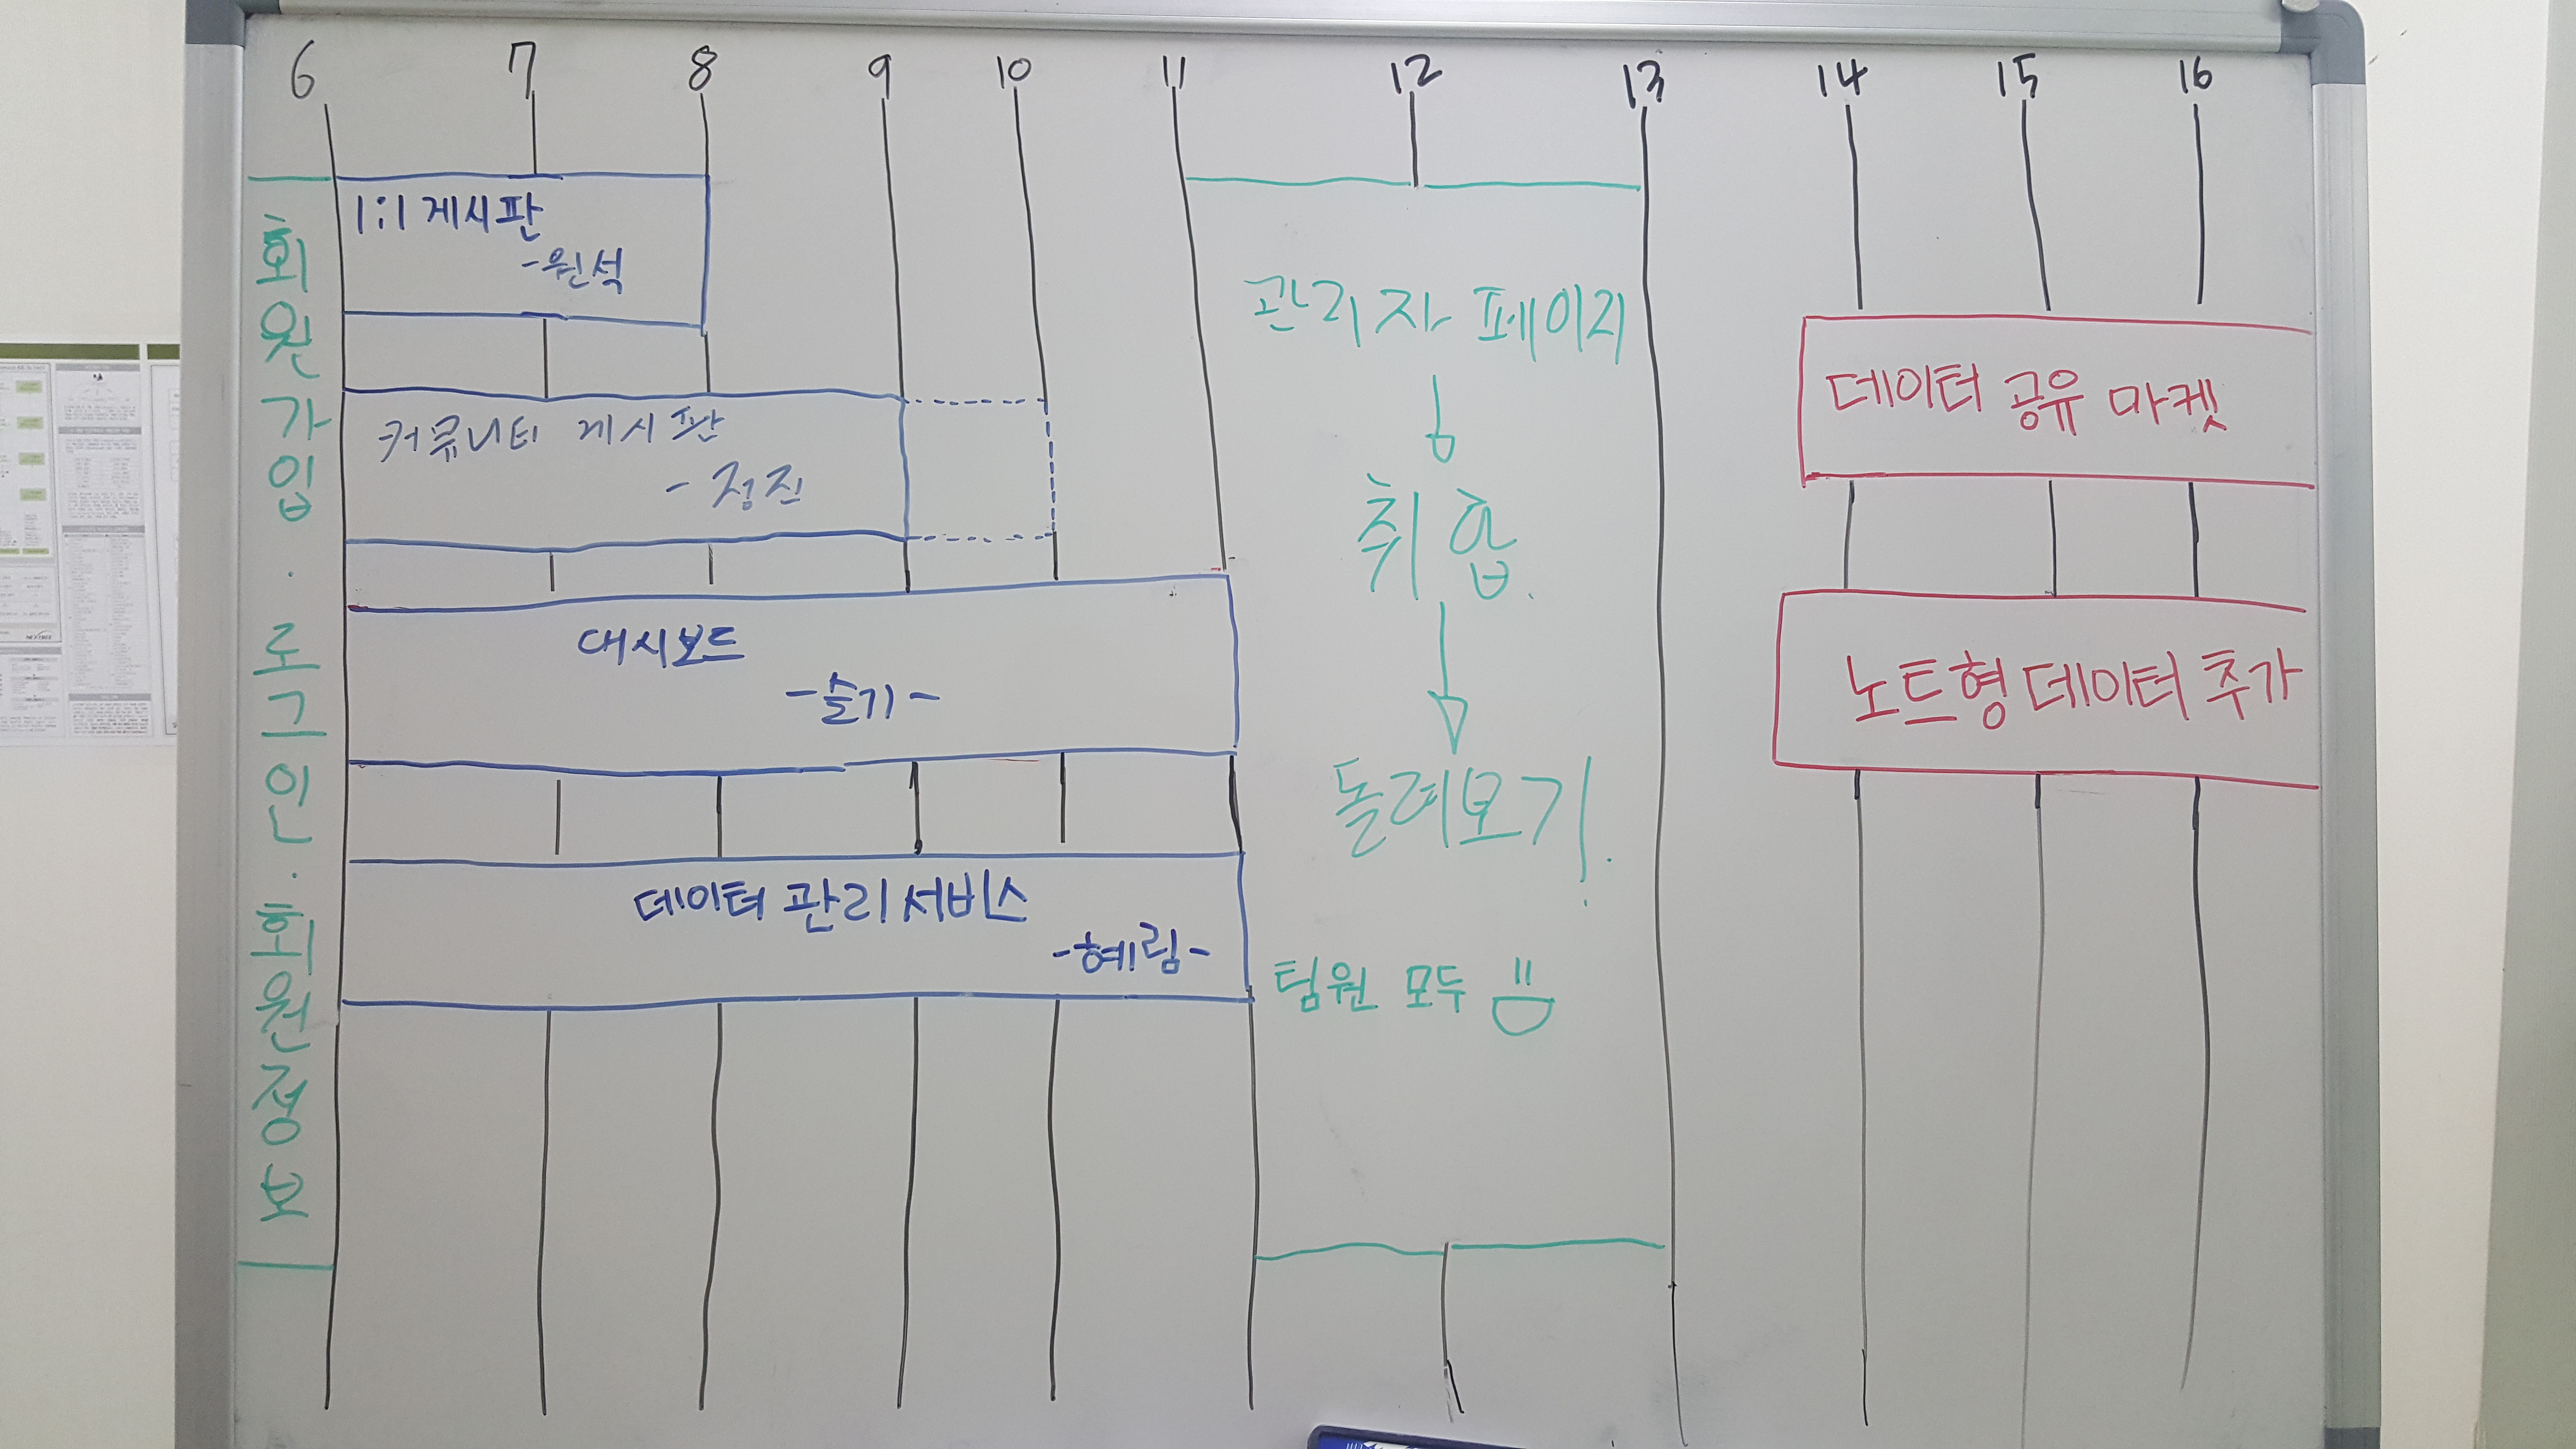 6 7 8 9 10 11 12 13 14 15 16
회원가입 · 로그인 · 회원정보
1:1 게시판
-원석
커뮤니티 게시판
- 정진
대시보드
-슬기-
데이터 관리 서비스
-혜림-
관리자 페이지
취합
돌려보기!
팀원 모두
데이터 공유 마켓
노트형 데이터 추가